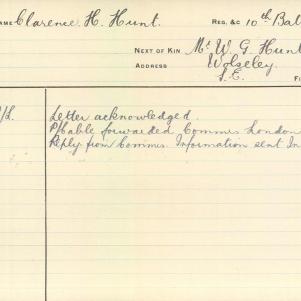 NAME Clarence H. Hunt. REG. &c 10th Bat
NEXT OF KIN Mr W. G. Hunt
ADDRESS Wolseley.
F
Letter acknowledged.
P/Cable forwarded Commrs London
Reply from Commrs. Information sent In